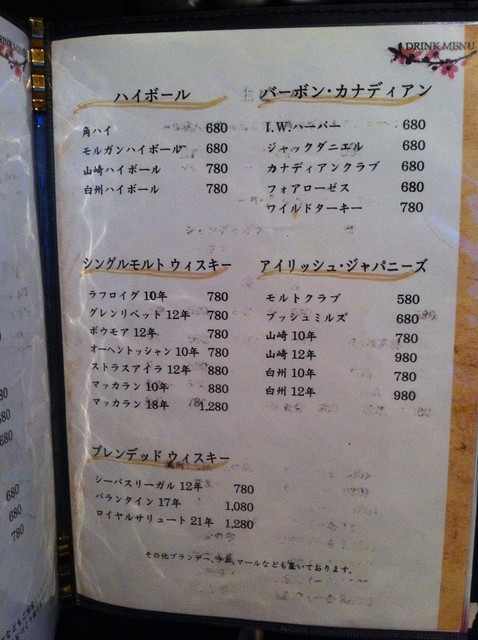 DRINK MENU
ハイボール
角ハイ 680
モルガンハイボール 680
山崎ハイボール 780
白州ハイボール 780
バーボン・カナディアン
I.W.ハーパー 680
ジャックダニエル 680
カナディアンクラブ 680
フォアローゼス 680
ワイルドターキー 780
シングルモルト ウィスキー
ラフロイグ 10年 780
グレンリベット 12年 780
ボウモア 12年 780
オーヘントッシャン 10年 780
ストラスアイラ 12年 880
マッカラン 10年 880
マッカラン 18年 1,280
アイリッシュ・ジャパニーズ
モルトクラブ 580
ブッシュミルズ 680
山崎 10年 780
山崎 12年 980
白州 10年 780
白州 12年 980
ブレンデッド ウィスキー
シーバスリーガル 12年 780
バランタイン 17年 1,080
ロイヤルサリュート 21年 1,280
その他ブランデー、マールなども置いております。
680
680
680
780